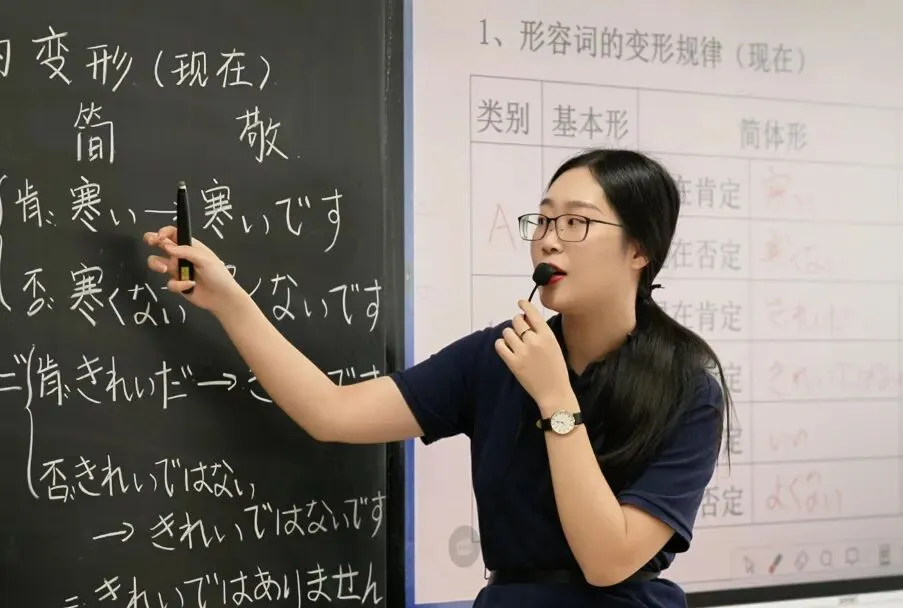 变形（现在）
简 敬
肯: 寒い→寒いです
否: 寒くない くないです
肯: きれいだ→き です
否: きれいではない
→きれいではないです
きれいではありません
1、形容词的变形规律（现在）
类别 基本形 简体形
A 在肯定
在否定 寒くない
现在肯定 きれいだ
きれいではない
定 いい
否定 よくない